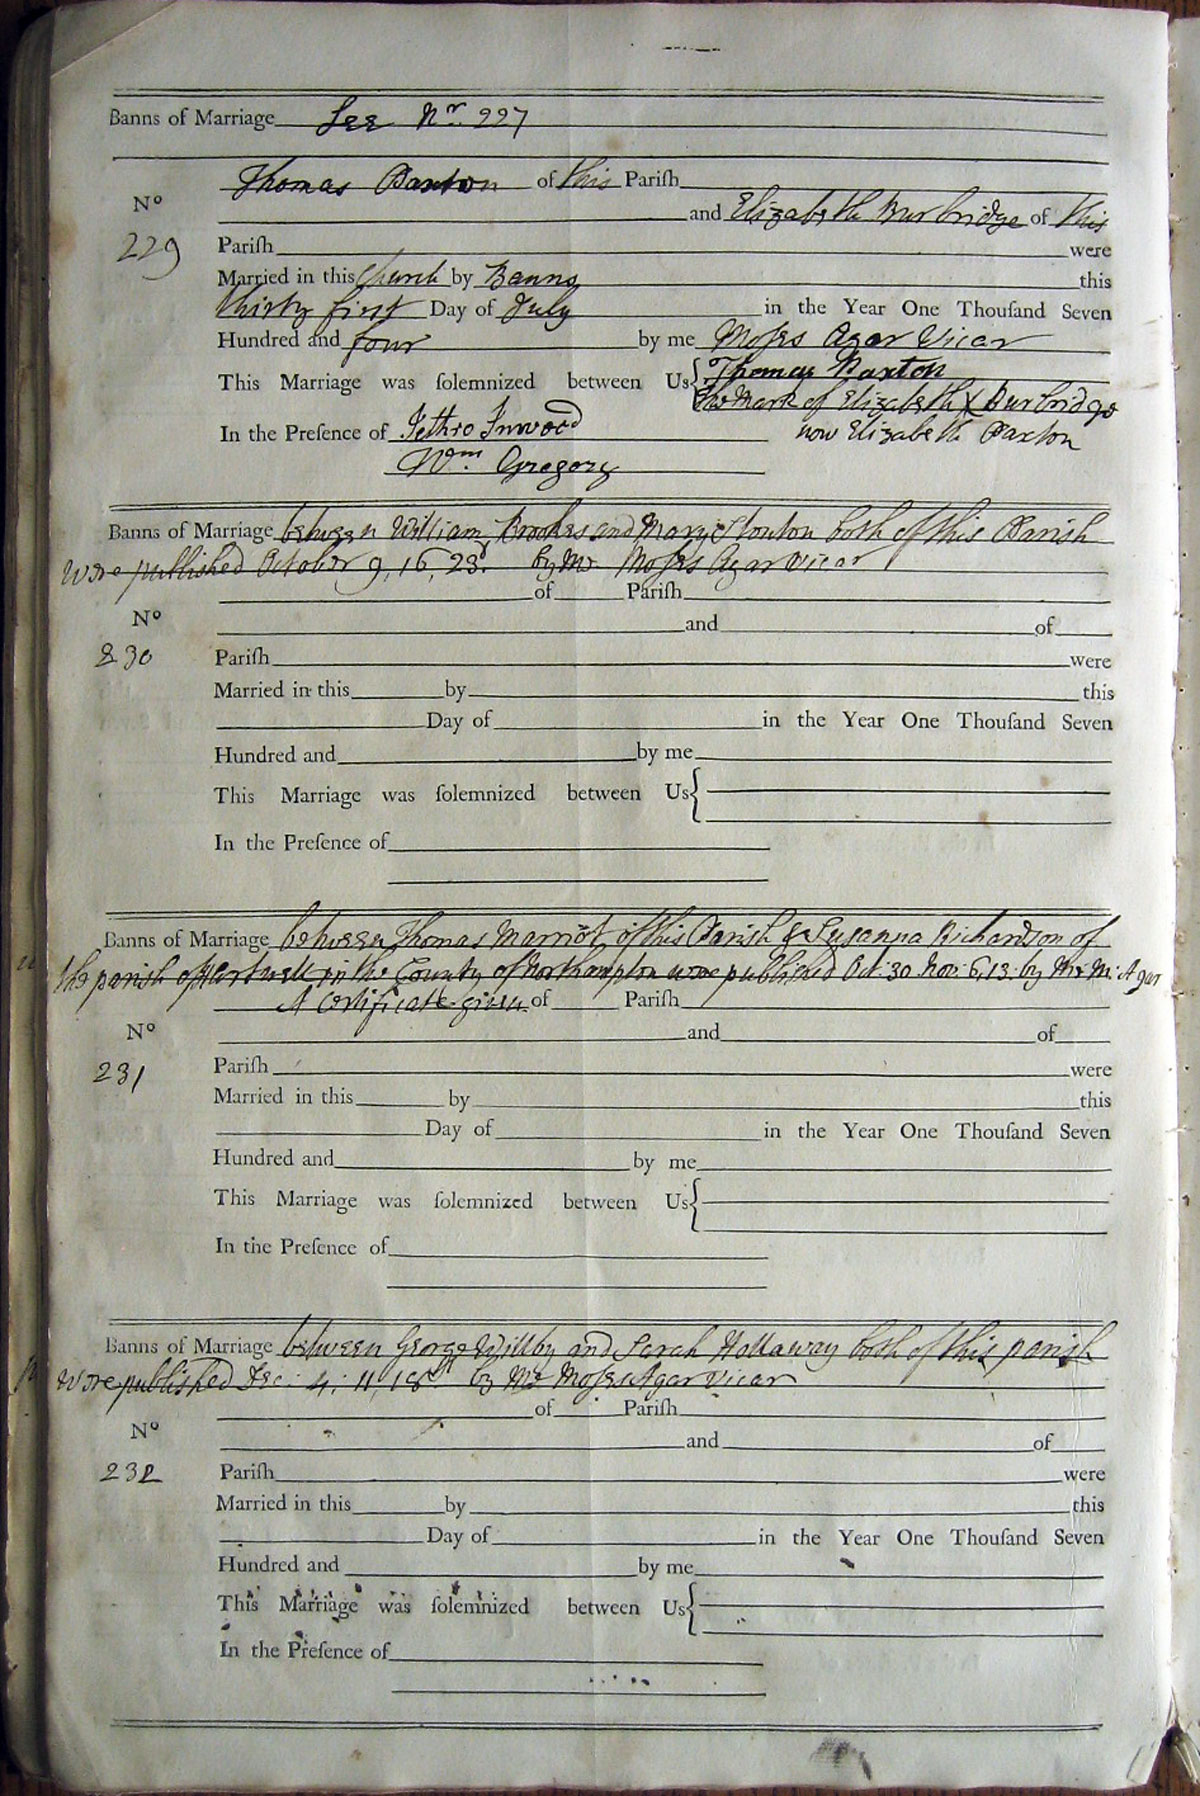 Banns of Marriage See Nr. 227
Thomas Paxton of this Pariſh
No
and Elizabeth Burbridge of this
229
Pariſh were
Married in this Church by Banns this
thirty first Day of July in the Year One Thouſand Seven
Hundred and four by me Moſes Agar Vicar
This Marriage was ſolemnized between Us { Thomas Paxton
The Mark of Elizabeth X Burbridge
In the Preſence of Jethro Inwood now Elizabeth Paxton
Wm. Gregory
Banns of Marriage between William Brookes and Mary Stonton both of this Parish
were published October 9, 16, 23d. by Mr Moſes Agar Vicar
of Pariſh
No
and of
230
Pariſh were
Married in this by this
Day of in the Year One Thouſand Seven
Hundred and by me
This Marriage was ſolemnized between Us {
In the Preſence of
Banns of Marriage between Thomas Marriot of this Parish & Susanna Richardson of
the parish of Hartwell in the County of Northampton were published Oct: 30 Nov: 6, 13. by Mr. M: Agar
A Certificate given. of Pariſh
No
and of
231
Pariſh were
Married in this by this
Day of in the Year One Thouſand Seven
Hundred and by me
This Marriage was ſolemnized between Us {
In the Preſence of
Banns of Marriage between George Willby and Sarah Hollaway both of this parish
Were published Dec: 4, 11, 18th by Mr Moſes Agar Vicar
of Pariſh
No
and of
232
Pariſh were
Married in this by this
Day of in the Year One Thouſand Seven
Hundred and by me
This Marriage was ſolemnized between Us {
In the Preſence of